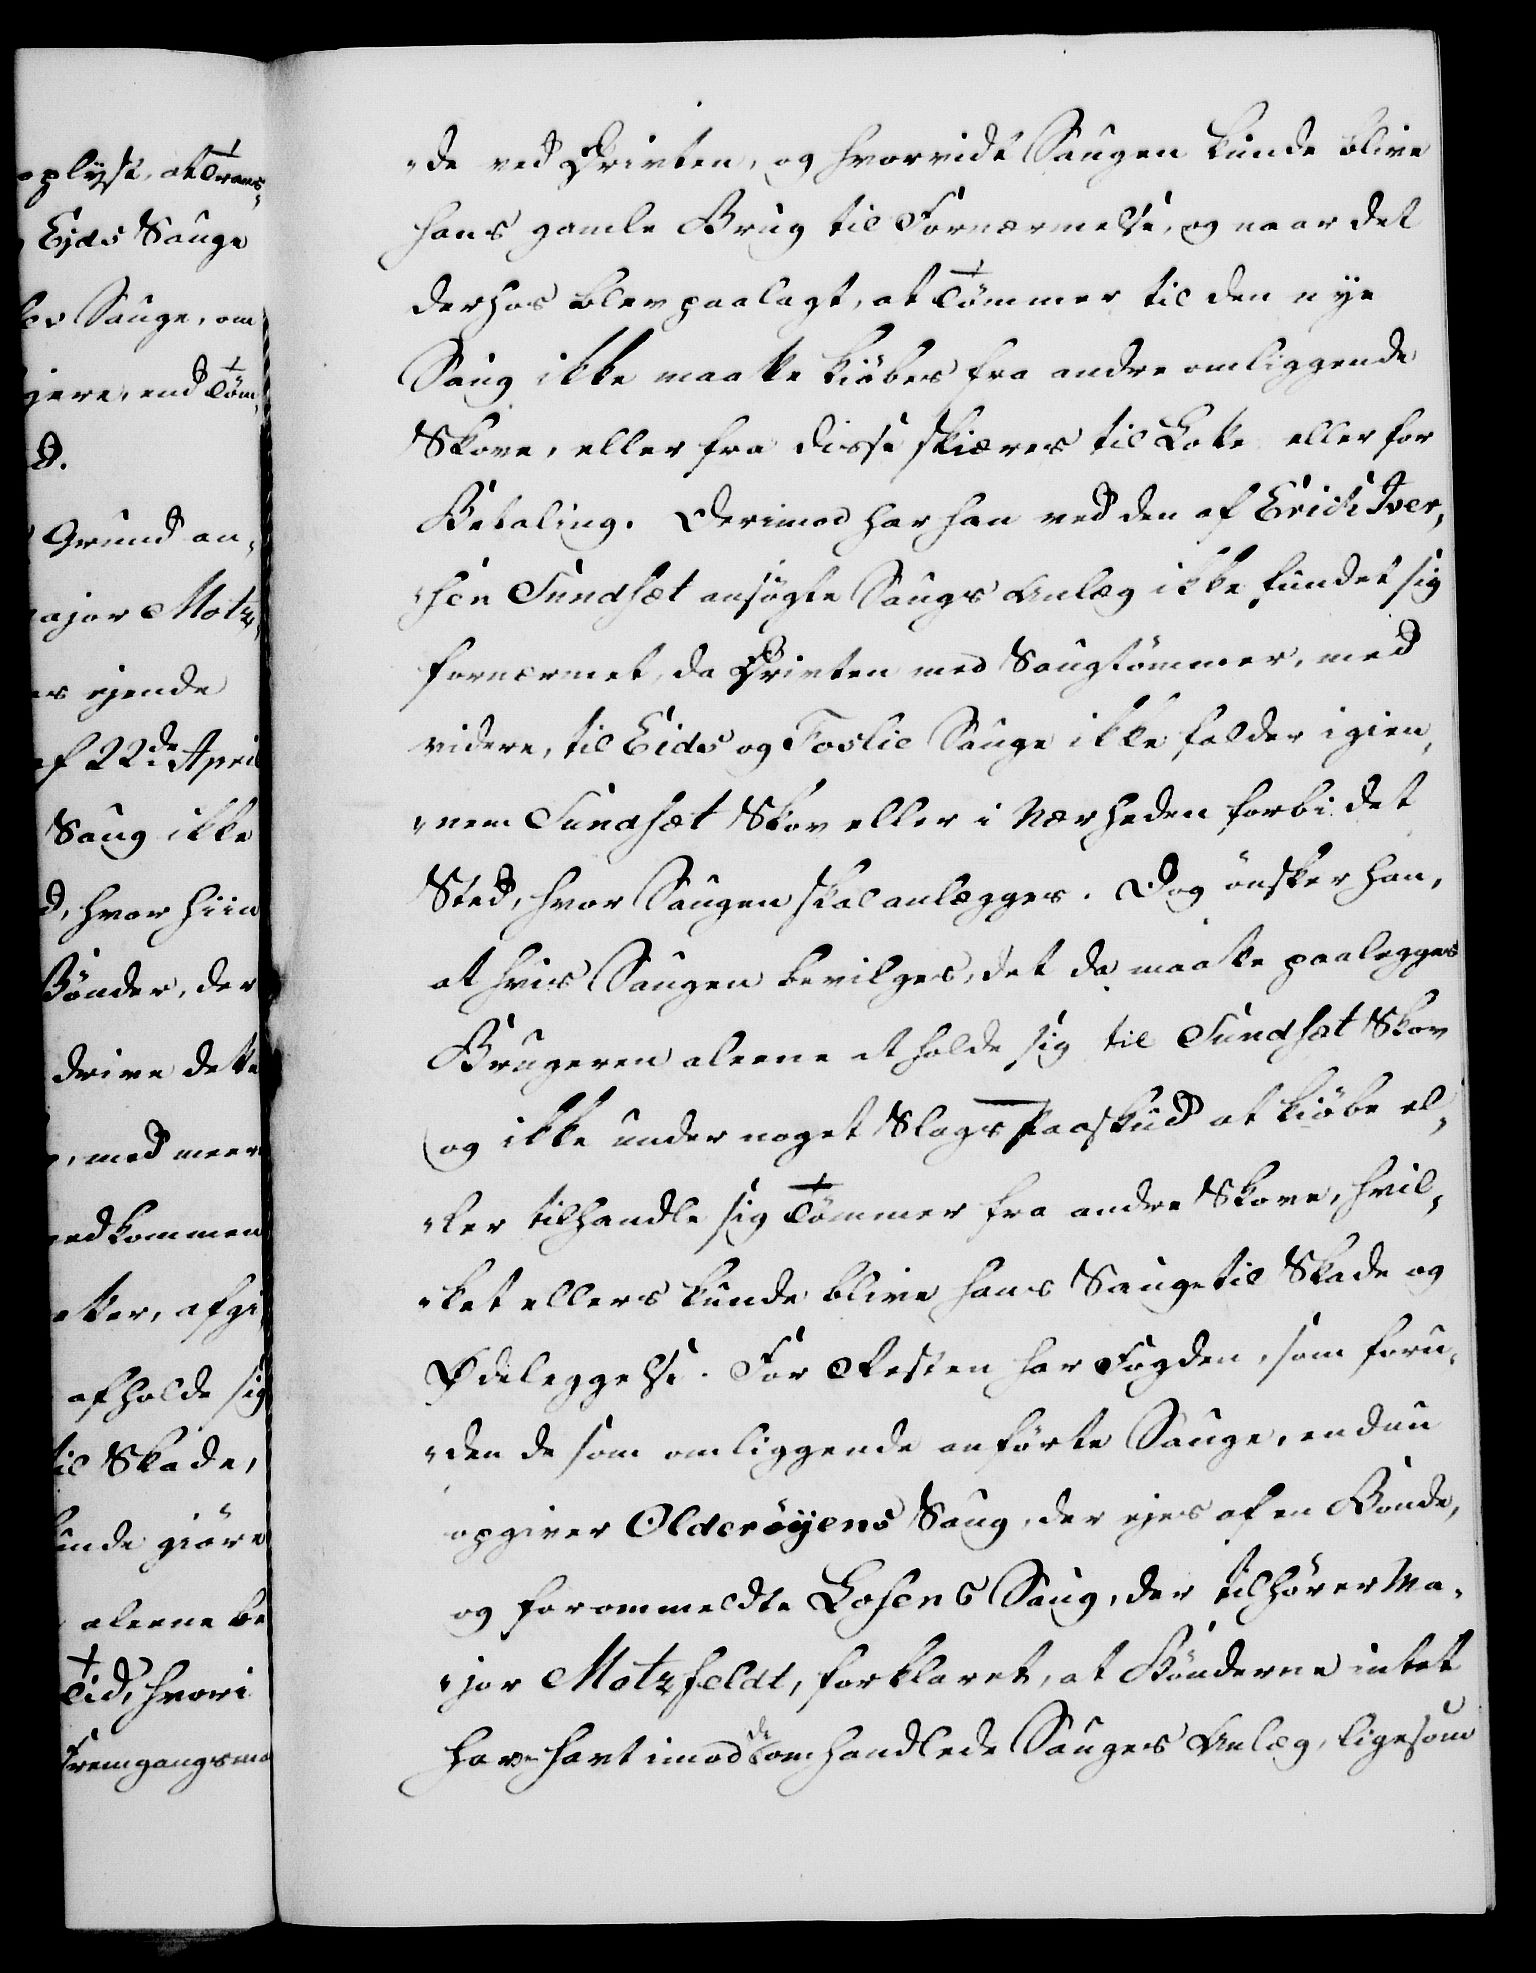 oplyst, at Trans-
Ejds Sauge
lov Sauge, om
gere, end Töm-
d.
Grund an-
ajor Motz-
er ejende
af 22de April
Saug ikke
d, hvor hiin
Bönder, der
drive dette
, med meer
vedkommen
etter, afgi
afholde sig
til Skade,
kunde giöre
aleene be
Tid, hvori
Fremgangsma
-de ved Drivten, og hvorvidt Saugen kunde blive
hans gamle Brug til Fornærmelse, og naar det
derhos blev paalagt, at Tömmer til den nye
Saug ikke maatte kiöbes fra andre omliggende
Skove, eller fra disse skiæres til Lote eller for
Betaling. Derimod har han ved den af Erich Iver-
-sen Sundsæt ansögte Saugs Anlæg ikke fundet sig
fornærmet, da Driften med Saugtömmer, med
videre, til Eids og Foslie Sauge ikke falder igien-
-nem Sundsæt Skov eller i Nærheden forbi det
Sted, hvor Saugen skal anlægges. Dog önsker han,
at hvis Saugen bevilges, det da maatte paalegges
Brugeren aleene at holde sig til Sundsæt Skov
og ikke under noget Slags Paaskud at kiöbe el-
-ler tilhandle sig Tömmer fra andre Skove, hvil-
-ket ellers kunde blive hans Sauge til Skade og
Ödeleggelse. For Resten har Fogden, som foru-
-den de som omliggende anförte Sauge, endnu
opgiver Olderöyens Saug, der ejes af en Bonde,
og forommeldte Losens Saug, der tilhörer Ma-
-jor Motzfeldt, forklaret, at Bönderne intet
have havt imod de omhandlede Saugers Anlæg, ligesom